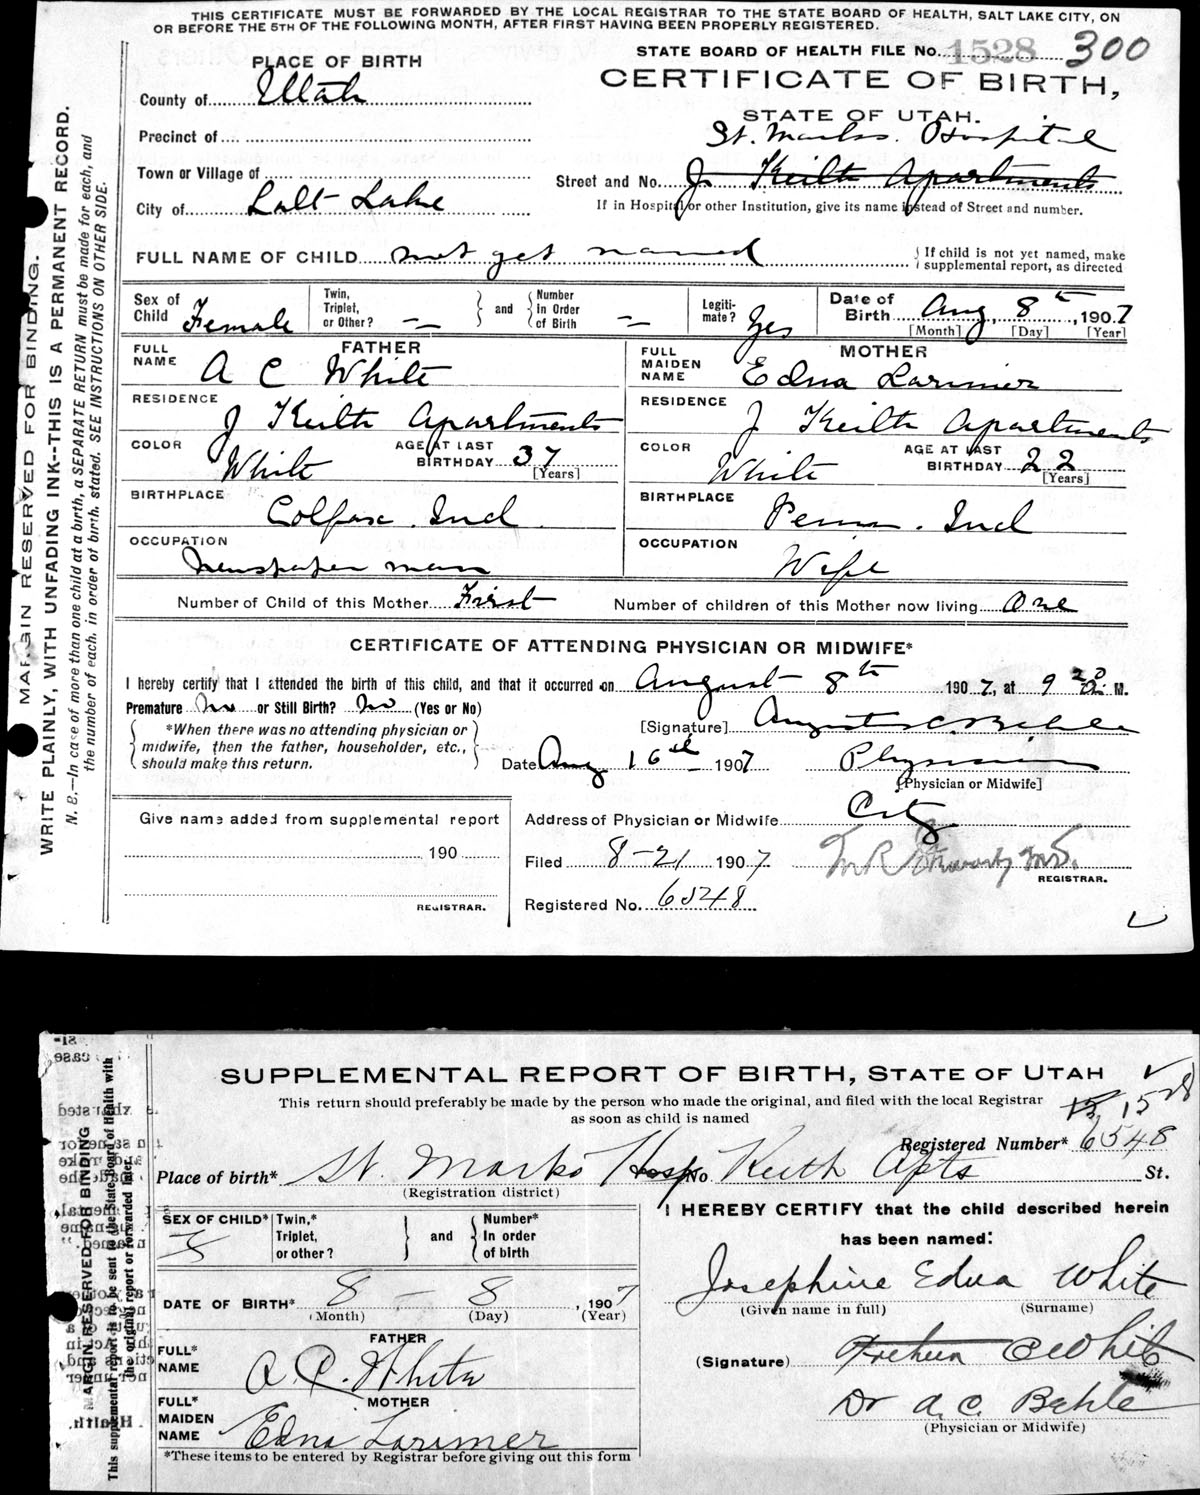 THIS CERTIFICATE MUST BE FORWARDED BY THE LOCAL REGISTRAR TO THE STATE BOARD OF HEALTH, SALT LAKE CITY, ON
OR BEFORE THE 5TH OF THE FOLLOWING MONTH, AFTER FIRST HAVING BEEN PROPERLY REGISTERED.
STATE BOARD OF HEALTH FILE No. 1528 300
PLACE OF BIRTH
CERTIFICATE OF BIRTH,
STATE OF UTAH.
County of Utah
St. Marks. Hospital
Precinct of
Town or Village of
Street and No. J. Keith Apartments
City of Salt Lake
If in Hospital or other Institution, give its name instead of Street and number.
FULL NAME OF CHILD not yet named
{If child is not yet named, make
supplemental report, as directed
Sex of Child Female
Twin, Triplet, or Other? —
and
Number In Order of Birth —
Legiti-mate? Yes
Date of Birth Aug, 8th, 1907
[Month] [Day] [Year]
FATHER
FULL NAME A C White
MOTHER
FULL MAIDEN NAME Edna Larimer
RESIDENCE J Keith Apartments
RESIDENCE J Keith Apartments
COLOR White AGE AT LAST BIRTHDAY 37 [Years]
COLOR White AGE AT LAST BIRTHDAY 22 [Years]
BIRTHPLACE Colfax. Ind
BIRTHPLACE Peru. Ind
OCCUPATION Newspaper man
OCCUPATION Wife
Number of Child of this Mother First
Number of children of this Mother now living One
CERTIFICATE OF ATTENDING PHYSICIAN OR MIDWIFE*
I hereby certify that I attended the birth of this child, and that it occurred on August 8th 1907, at 9 M.
Premature No or Still Birth? No (Yes or No)
[Signature] Augustus C. Behle
*When there was no attending physician or
midwife, then the father, householder, etc.,
should make this return.
Date Aug 16th 1907 Physician
[Physician or Midwife]
Give name added from supplemental report
190
REGISTRAR.
Address of Physician or Midwife City
Filed 8-21 1907
REGISTRAR.
Registered No. 6548
MARGIN RESERVED FOR BINDING.
WRITE PLAINLY, WITH UNFADING INK--THIS IS A PERMANENT RECORD.
N. B.—In case of more than one child at a birth, a SEPARATE RETURN must be made for each, and
the number of each, in order of birth, stated. SEE INSTRUCTIONS ON OTHER SIDE.
SUPPLEMENTAL REPORT OF BIRTH, STATE OF UTAH
This return should preferably be made by the person who made the original, and filed with the local Registrar
as soon as child is named
1528
Registered Number* 6548
Place of birth* St. Marks Hosp No. Keith Apts St.
(Registration district)
SEX OF CHILD* F
Twin,* Triplet, or other?
and
Number* In order of birth
DATE OF BIRTH* 8 - 8, 1907
(Month) (Day) (Year)
FATHER
FULL* NAME A C. White
MOTHER
FULL* MAIDEN NAME Edna Larimer
*These items to be entered by Registrar before giving out this form
I HEREBY CERTIFY that the child described herein
has been named:
Josephine Edna White
(Given name in full) (Surname)
(Signature) C White
Dr A. C. Behle
(Physician or Midwife)
MARGIN RESERVED FOR BINDING
This supplemental report is to be sent to the State Board of Health with
the original report or forwarded later.